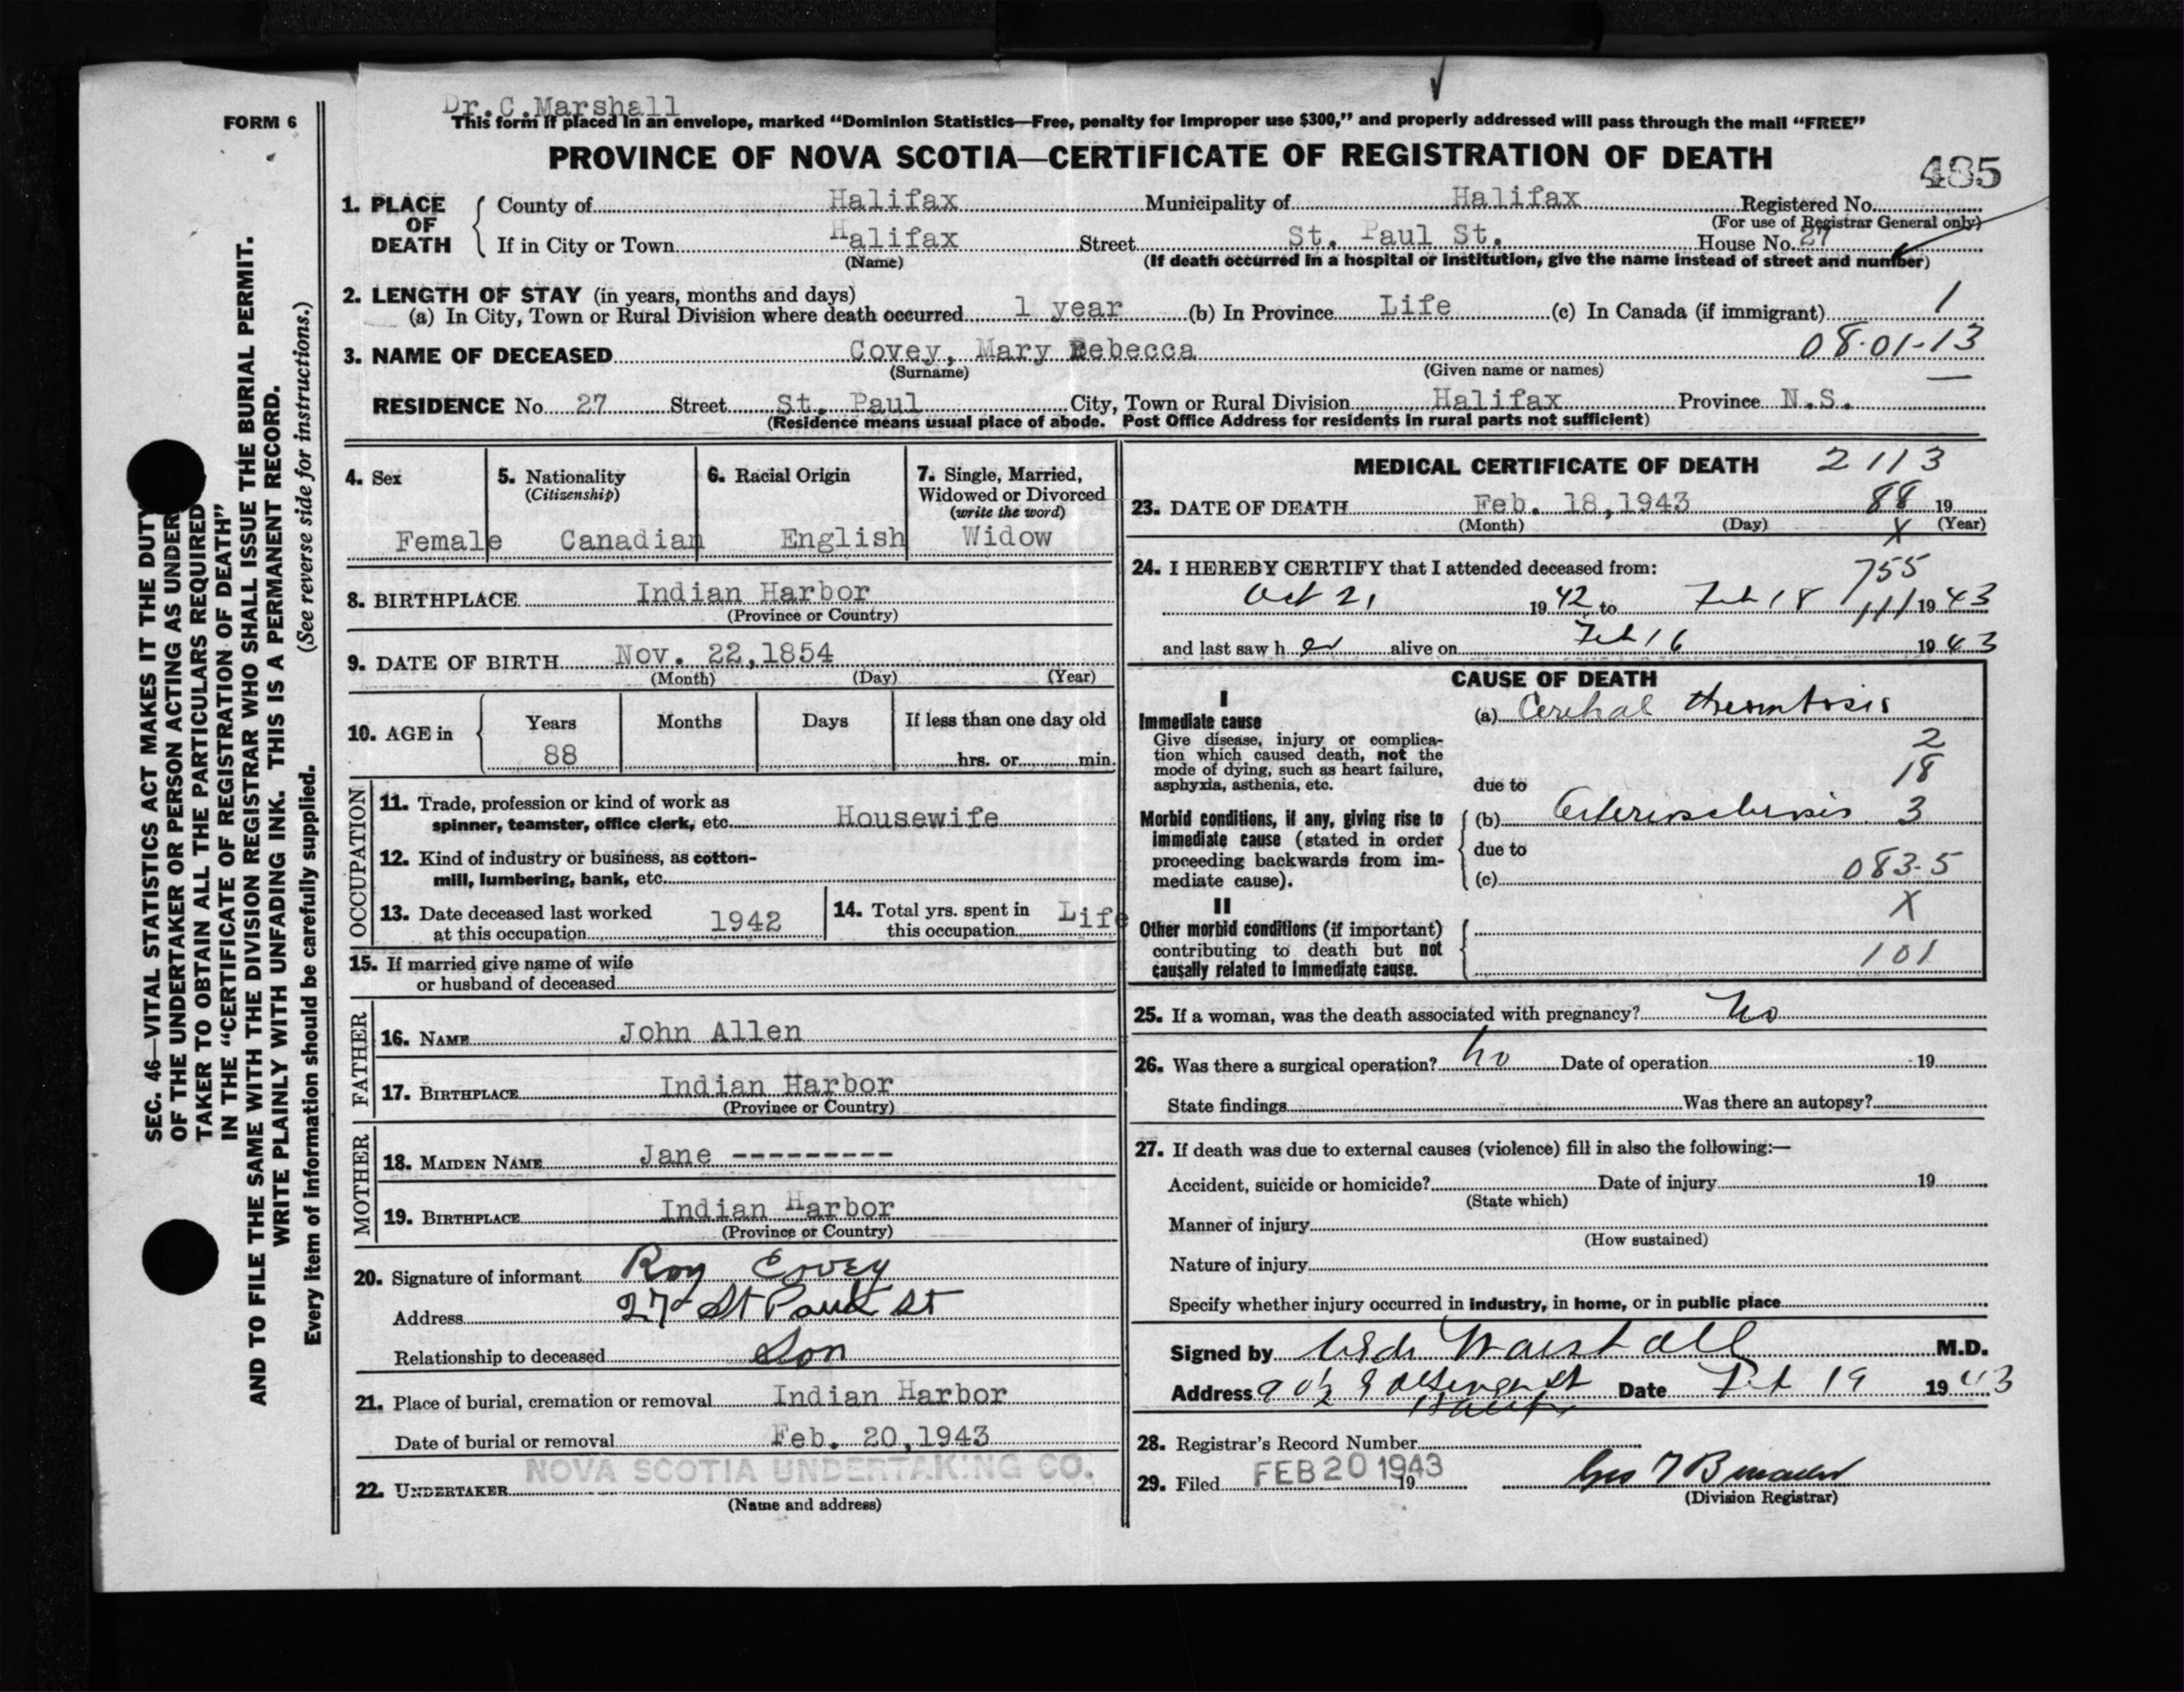 Dr. C. Marshall
FORM 6
This form if placed in an envelope, marked “Dominion Statistics—Free, penalty for improper use $300,” and properly addressed will pass through the mail “FREE”
PROVINCE OF NOVA SCOTIA—CERTIFICATE OF REGISTRATION OF DEATH
485
1. PLACE OF DEATH
County of Halifax Municipality of Halifax Registered No.
(For use of Registrar General only)
If in City or Town Halifax Street St. Paul St. House No. 27
(Name) (If death occurred in a hospital or institution, give the name instead of street and number)
2. LENGTH OF STAY (in years, months and days)
(a) In City, Town or Rural Division where death occurred 1 year (b) In Province Life (c) In Canada (if immigrant) 1
3. NAME OF DECEASED Covey, Mary Rebecca 08-01-13
(Surname) (Given name or names)
RESIDENCE No. 27 Street St. Paul City, Town or Rural Division Halifax Province N.S.
(Residence means usual place of abode. Post Office Address for residents in rural parts not sufficient)
4. Sex
Female
5. Nationality
(Citizenship)
Canadian
6. Racial Origin
English
7. Single, Married,
Widowed or Divorced
(write the word)
Widow
8. BIRTHPLACE Indian Harbor
(Province or Country)
9. DATE OF BIRTH Nov. 22, 1854
(Month) (Day) (Year)
10. AGE in
Years Months Days If less than one day old
88 hrs. or min.
OCCUPATION
11. Trade, profession or kind of work as
spinner, teamster, office clerk, etc. Housewife
12. Kind of industry or business, as cotton-
mill, lumbering, bank, etc.
13. Date deceased last worked
at this occupation 1942
14. Total yrs. spent in
this occupation Life
15. If married give name of wife
or husband of deceased
FATHER
16. NAME John Allen
17. BIRTHPLACE Indian Harbor
(Province or Country)
MOTHER
18. MAIDEN NAME Jane ---------
19. BIRTHPLACE Indian Harbor
(Province or Country)
20. Signature of informant Roy Covey
Address 27 St Paul St
Relationship to deceased Son
21. Place of burial, cremation or removal Indian Harbor
Date of burial or removal Feb. 20, 1943
NOVA SCOTIA UNDERTAKING CO.
22. UNDERTAKER
(Name and address)
MEDICAL CERTIFICATE OF DEATH 2113
23. DATE OF DEATH Feb. 18, 1943 88 19
(Month) (Day) X (Year)
24. I HEREBY CERTIFY that I attended deceased from: 755
Oct 21 1942 to Feb 18 1943
and last saw her alive on Feb 16 1943
CAUSE OF DEATH
I
Immediate cause
Give disease, injury or complica-
tion which caused death, not the
mode of dying, such as heart failure,
asphyxia, asthenia, etc.
(a) Cerebral thrombosis
2
18
due to
Morbid conditions, if any, giving rise to
immediate cause (stated in order
proceeding backwards from im-
mediate cause).
(b) Arteriosclerosis 3
due to
(c) 083-5
X
II
Other morbid conditions (if important)
contributing to death but not
causally related to immediate cause.
101
25. If a woman, was the death associated with pregnancy? No
26. Was there a surgical operation? no Date of operation 19
State findings Was there an autopsy?
27. If death was due to external causes (violence) fill in also the following:—
Accident, suicide or homicide? Date of injury 19
(State which)
Manner of injury
(How sustained)
Nature of injury
Specify whether injury occurred in industry, in home, or in public place
Signed by Marshall M.D.
Address Date Feb 19 1943
28. Registrar's Record Number
29. Filed FEB 20 1943 19
(Division Registrar)
SEC. 46—VITAL STATISTICS ACT MAKES IT THE DUTY
OF THE UNDERTAKER OR PERSON ACTING AS UNDER
TAKER TO OBTAIN ALL THE PARTICULARS REQUIRED
IN THE “CERTIFICATE OF REGISTRATION OF DEATH”
AND TO FILE THE SAME WITH THE DIVISION REGISTRAR WHO SHALL ISSUE THE BURIAL PERMIT.
WRITE PLAINLY WITH UNFADING INK. THIS IS A PERMANENT RECORD.
Every item of information should be carefully supplied. (See reverse side for instructions.)